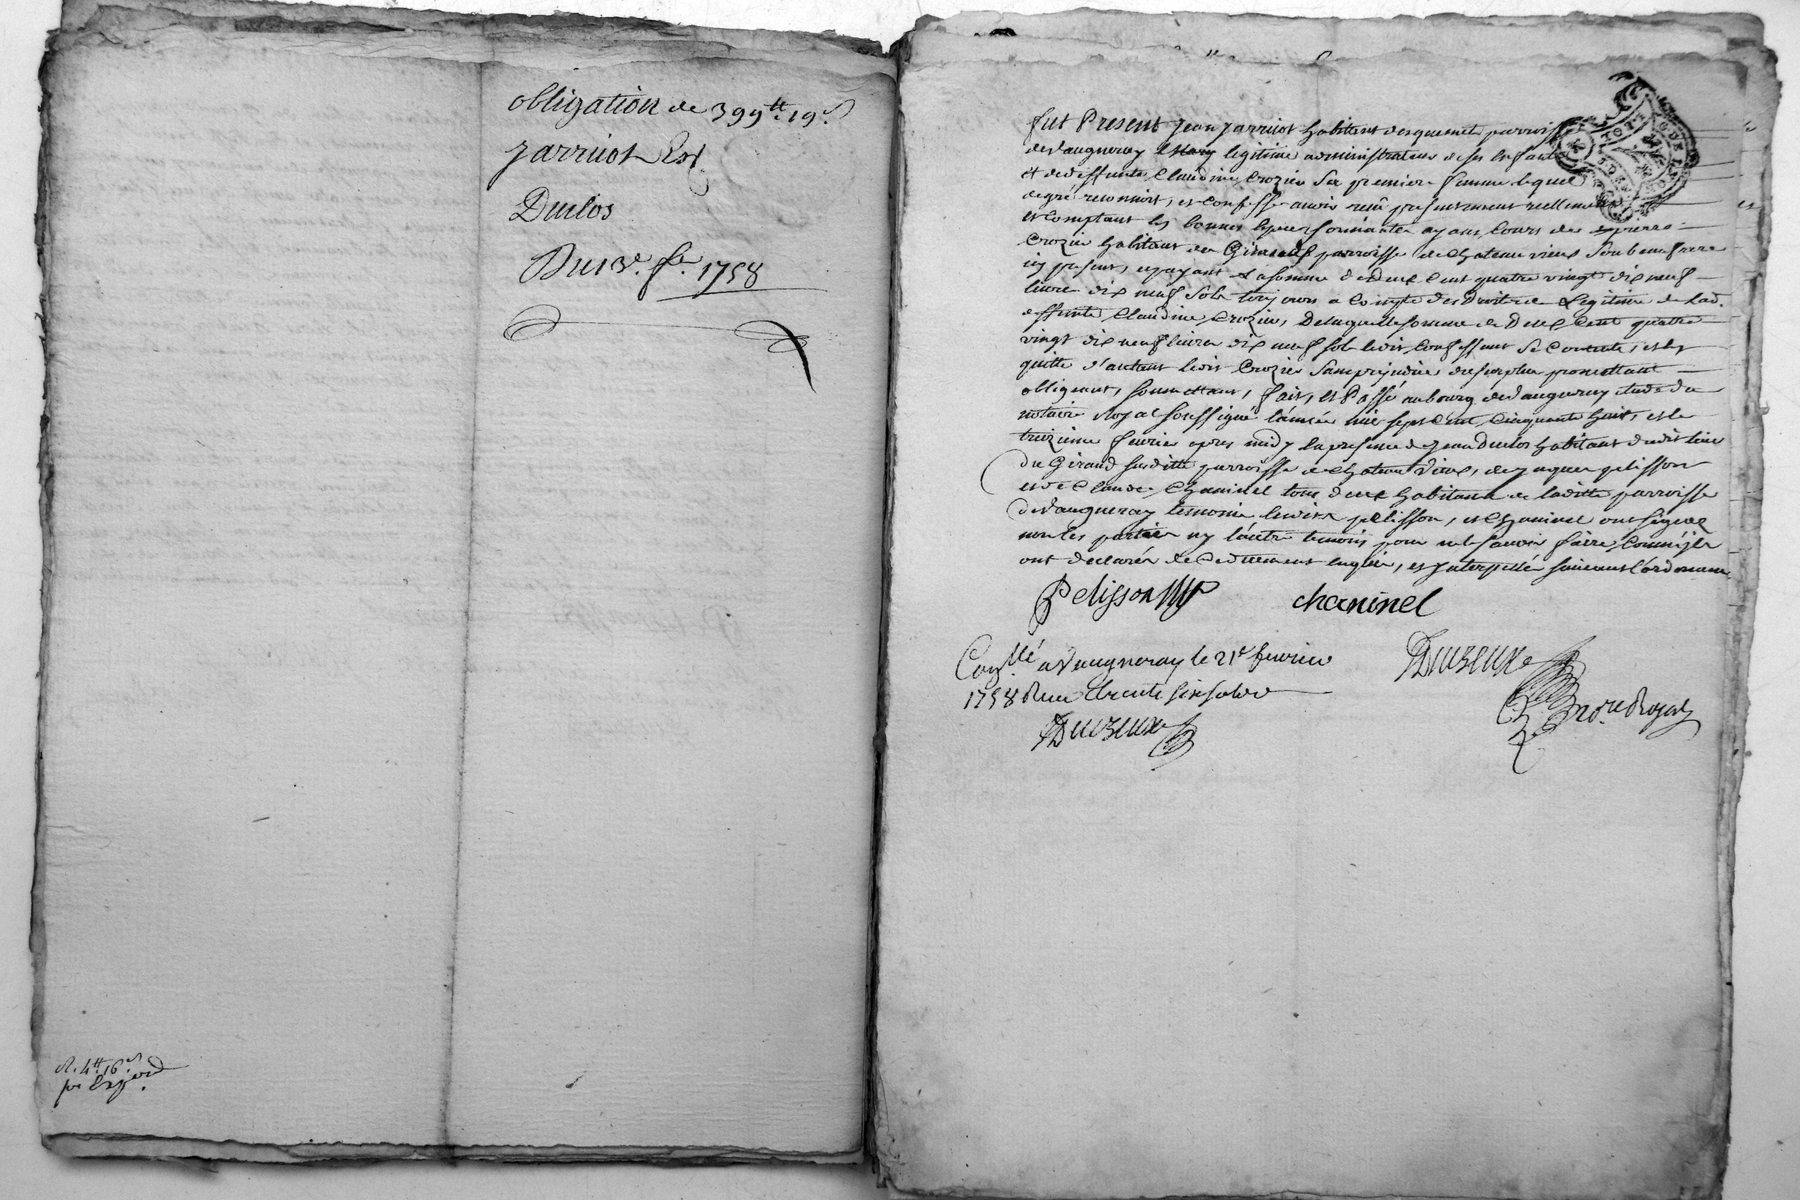 obligation de 399tt. 19s
Jarricot Et
Duclos
Du 13e. fer. 1758
R. 4tt. 16s
fut Present Jean Jarricot habitant desquemet parroisse
de Vaugneray legitime administrateur de ses Enfants
et de deffunte Claudine Crozier Sa premiere femme lequel
de gré reconnoit, et confesse avoir reçu presentement reellement
et comptant les bonnes Especes sonnantes ayans Cours de pierre
Crozier habitant du Giraud parroisse de chateauvieux Son beaufrere
icy present, et payant La somme de Deux Cent quatre vingt dix neuf
livre dix neuf Sols toujours a Compte des Droits de Legitime de Lad.
deffunte Claudine Crozier, De laquelle somme de Deux Cent quatre
vingt dix neuf livre dix neuf sols ledit Confessant Se Contente, et
quitte d'autant ledit Crozier Sans prejudice du surplus promettant
obligeant, soumettant, fait, et Passé au bourg de Vaugneray etude du
notaire Royal soussigné l'année mil sept Cent Cinquante huit, et le
treizieme fevrier apres midy En presence de Jean Duclos habitant dudit lieu
du Giraud susditte parroisse de chateauvieux, de Jaques pelisson
et de Claude Chaninel tous deux habitants de laditte parroisse
de Vaugneray temoins lesdits pelisson, et Chaninel ont signés
non les parties ny l'autre temoins pour ne Sçavoir faire Comme ils
ont declarés de Ce duement enquis, et Interpellés suivant l'ordonnance.
Pelisson chaninel
Conllé a Vaugneray le 21e fevrier
1758 Reçu trente six sols
Duzeux
Duzeux
nore. Royal